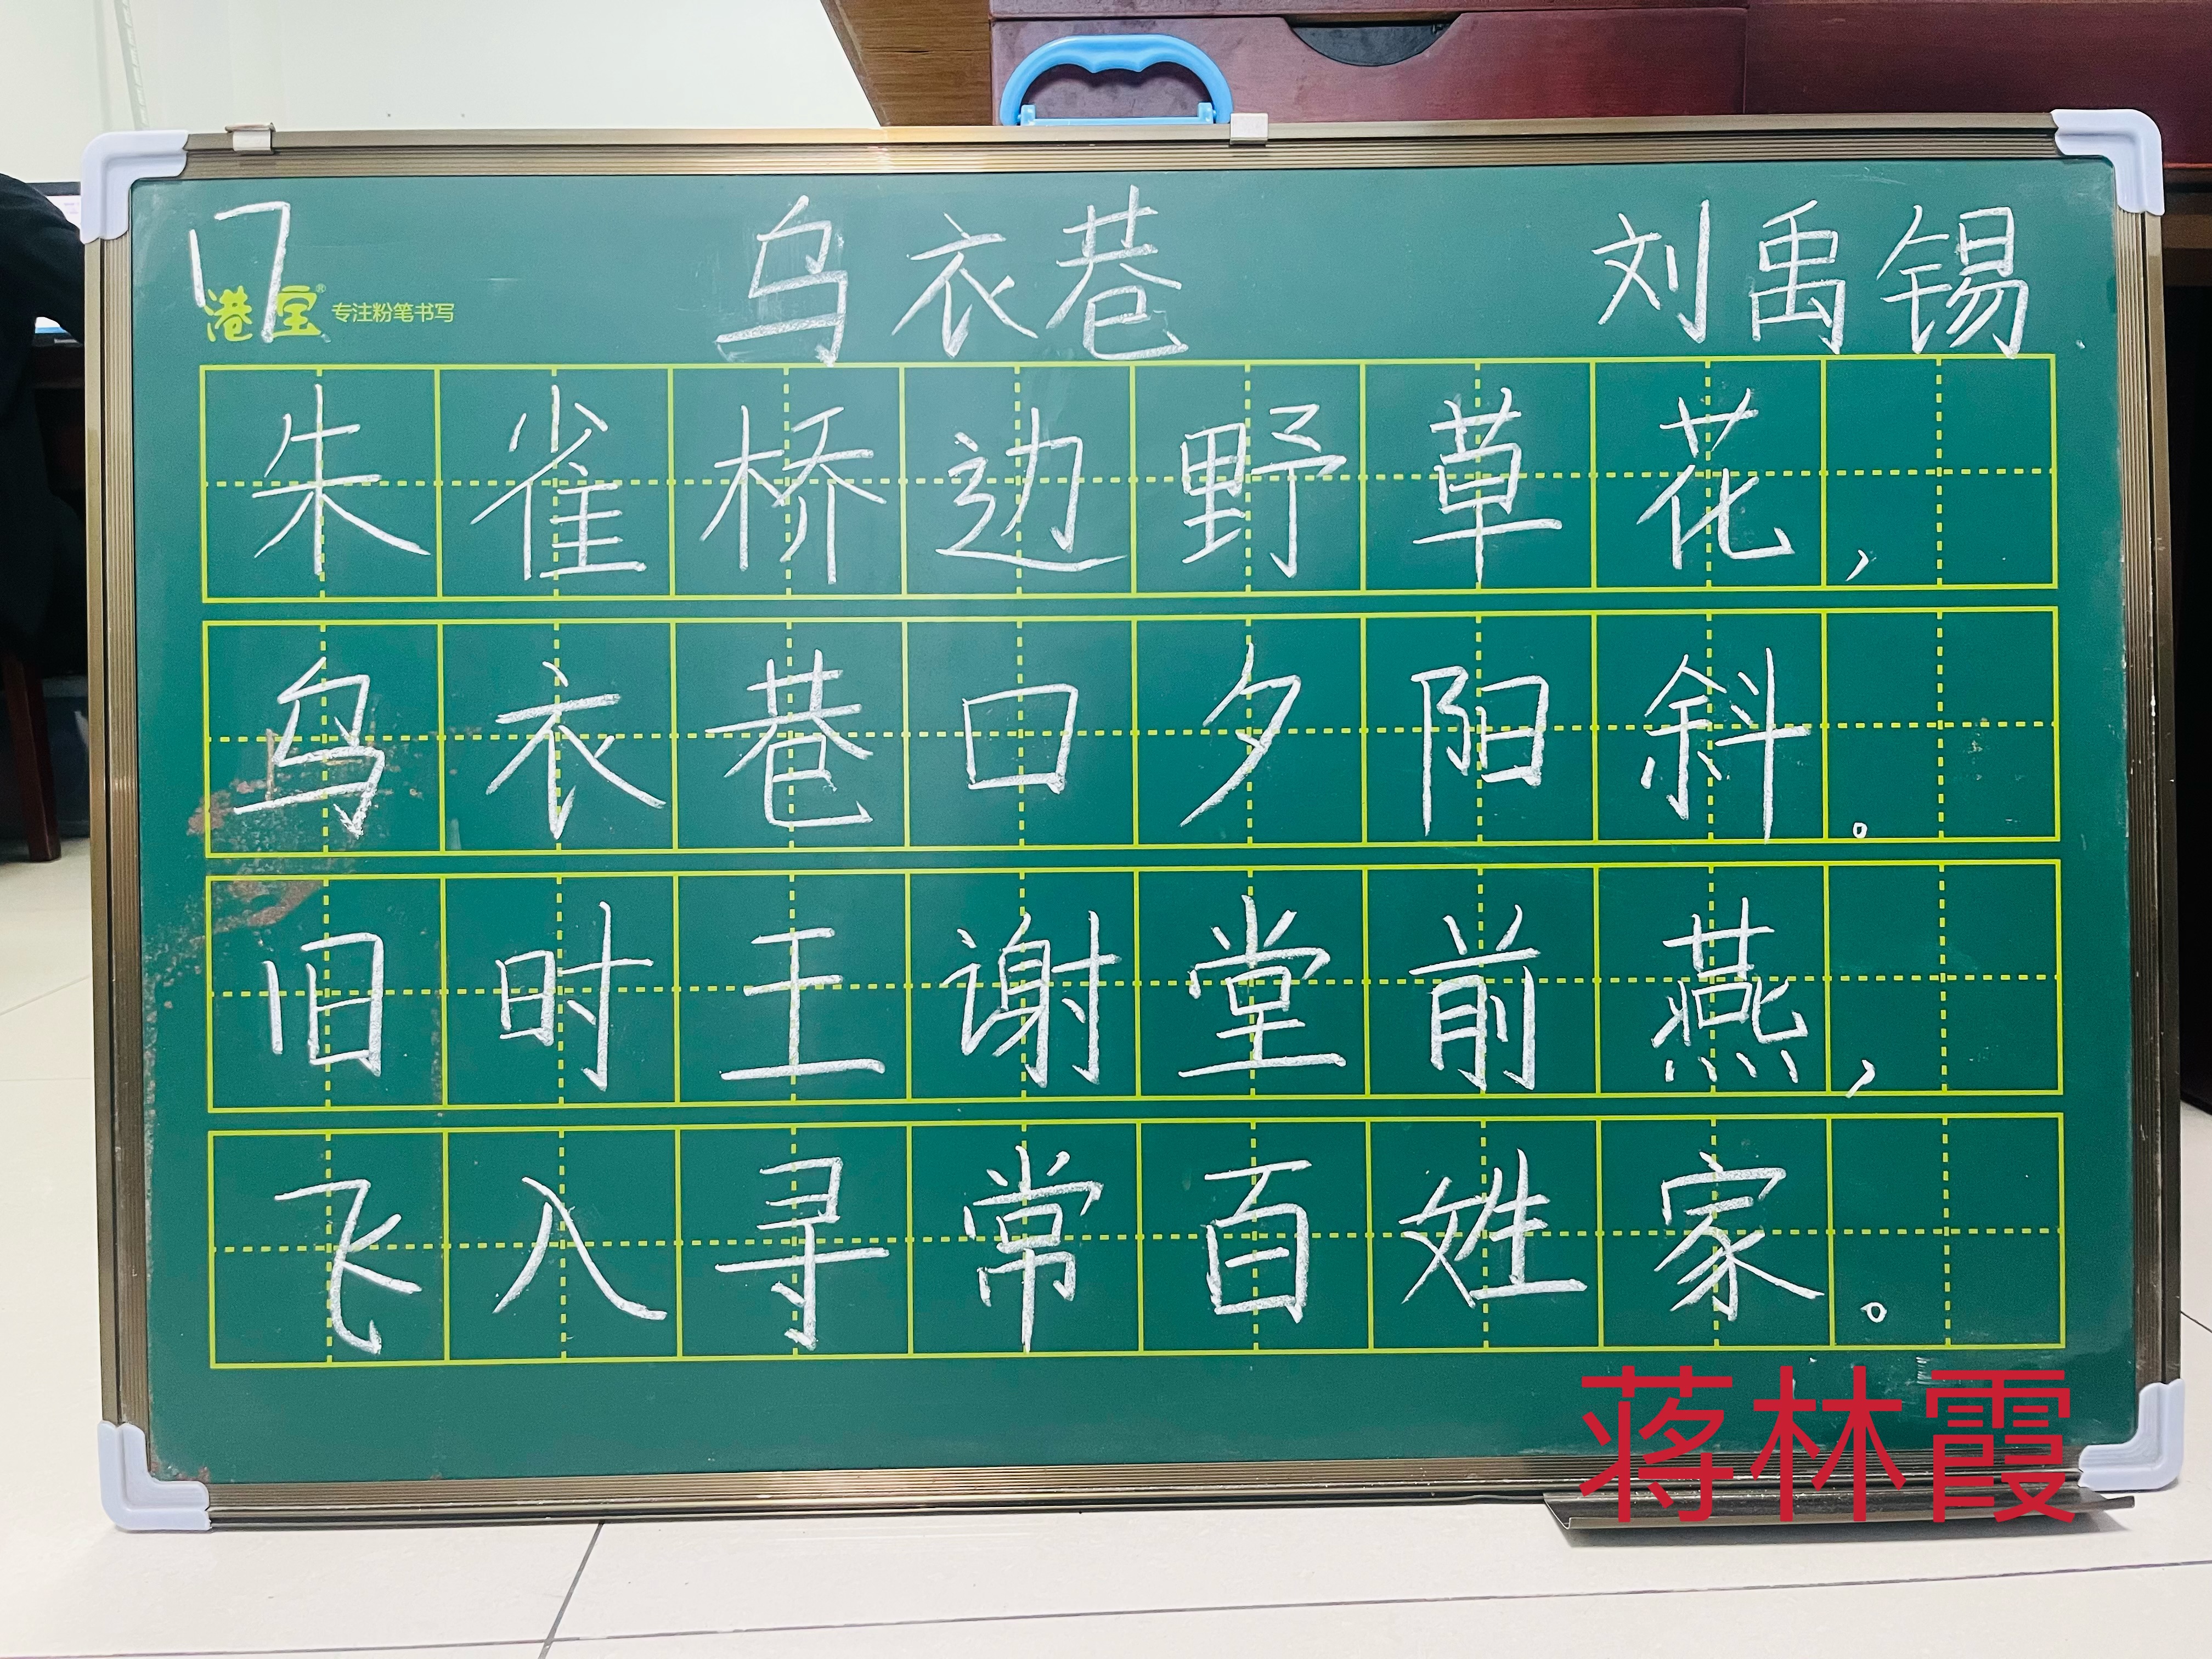 7 乌衣巷 刘禹锡
港宝® 专注粉笔书写
朱雀桥边野草花，
乌衣巷口夕阳斜。
旧时王谢堂前燕，
飞入寻常百姓家。
蒋林霞